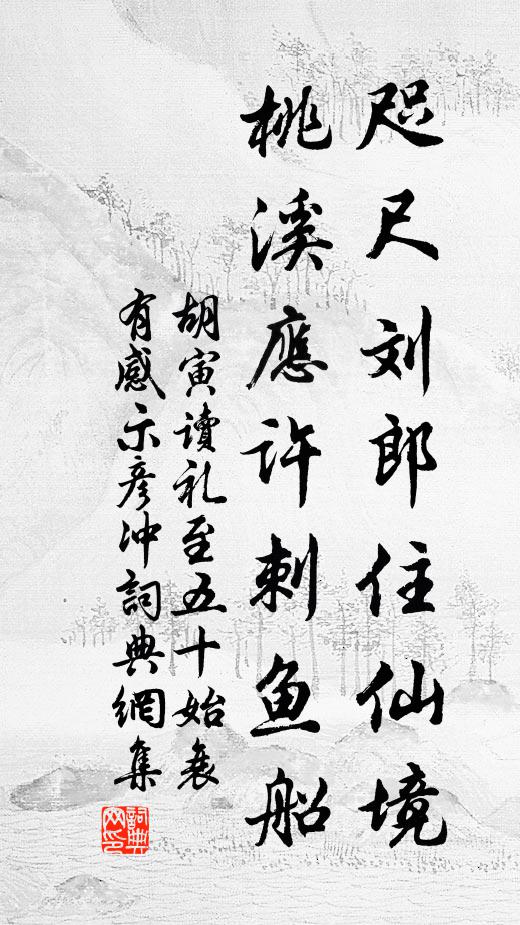 咫尺刘郎住仙境
桃溪應许刺鱼船
胡寅讀礼至五十始衰
有感示彦冲詞典網集
詞典网印